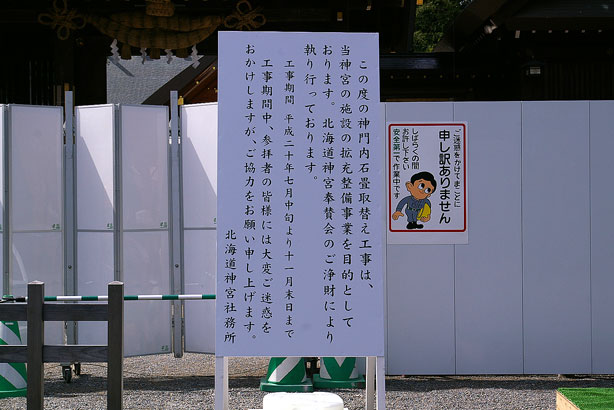 この度の神門内石畳取替え工事は、
当神宮の施設の拡充整備事業を目的として
おります。北海道神宮奉賛会のご浄財により
執り行っております。
工事期間　平成二十年七月中旬より十一月末日まで
工事期間中、参拝者の皆様には大変ご迷惑を
おかけしますが、ご協力をお願い申し上げます。
北海道神宮社務所
ご迷惑をかけてまことに
申し訳ありません
しばらくの間
お許し下さい
安全第一で作業中です